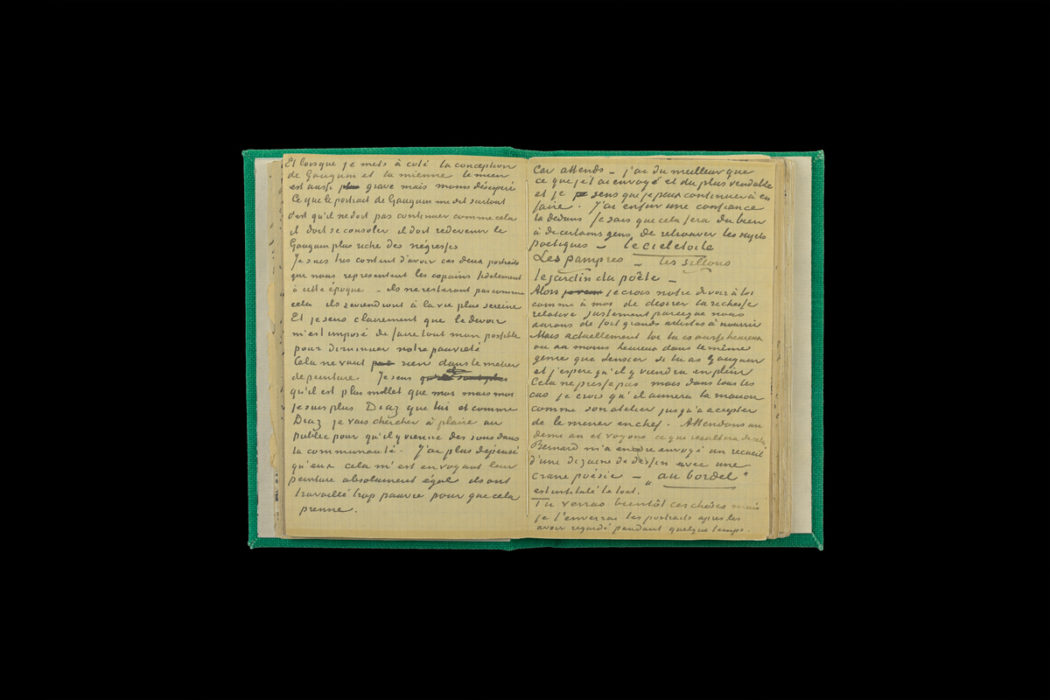 Et lorsque je mets à coté la conception
de Gauguin et la mienne le mien
est aussi grave mais moins désespéré
Ce que le portrait de Gauguin me dit surtout
c'est qu'il ne doit pas continuer comme cela
il doit se consoler il doit redevenir le
Gauguin plus riche des négresses
Je suis tres content d'avoir ces deux portraits
que nous representent les copains fidelement
à cette époque – ils ne resteront pas comme
cela ils reviendront à la vie plus sereine
Et je sens clairement que le devoir
m'est imposé de faire tout mon possible
pour diminuer notre pauvreté
Cela ne vaut rien dans le metier
de peinture. Je sens
qu'il est plus millet que moi mais moi
je suis plus Diaz que lui et comme
Diaz je vais chercher à plaire au
public pour qu'il y vienne des sous dans
la communauté. J'ai plus dépensé
qu'eux cela m'est en voyant leur
peinture absolument égal ils ont
travaillé trop pauvre pour que cela
prenne.
Car attends – j'ai du meilleur que
ce que je t'ai envoyé et du plus vendable
et je sens que je peux continuer à en
faire. J'ai enfin une confiance
là dedans Je sais que cela fera du bien
à de certains gens de retrouver les sujets
poetiques – le ciel etoilé
Les pampres – les sillons
le jardin du poète –
Alors je crois notre devoir à toi
comme à moi de desirer la richesse
relative justement parceque nous
aurons de fort grands artistes à nourrir
Mais actuellement toi tu es aussi heureux
ou au moins heureux dans le même
genre que Sensier si tu as Gauguin
et j'espère qu'il y viendra en plein
Cela ne presse pas mais dans tous les
cas je crois qu'il aimera la maison
comme son atelier jusqu'à accepter
de le mener en chef. Attendons un
demi an et voyons ce que resultera de cela
Bernard m'a encore envoyé un recueil
d'une dizaine de dessin avec une
crane poésie – au bordel"
est intitulé le tout.
Tu verras bientôt ces choses mais
je t'enverrai les portraits après les
avoir regardé pendant quelque temps.